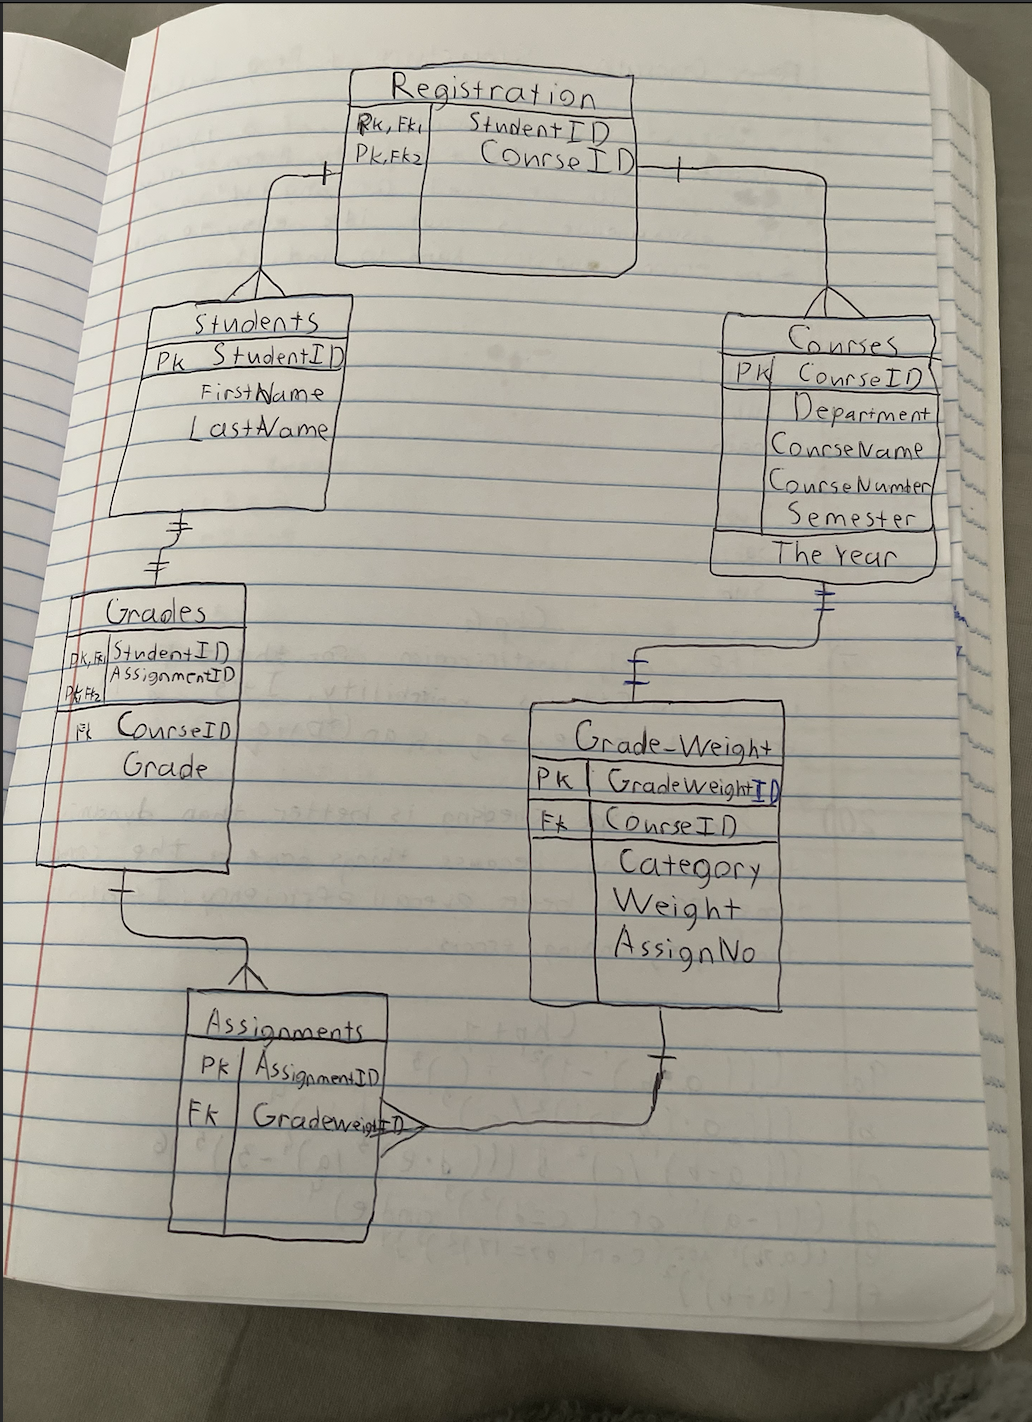 Registration
Pk, Fk1 StudentID
Pk, Fk2 CourseID
Students
Pk StudentID
FirstName
LastName
Courses
PK CourseID
Department
CourseName
CourseNumber
Semester
The Year
Grades
Pk, Fk1 StudentID
Pk, Fk2 AssignmentID
Fk CourseID
Grade
Grade-Weight
PK GradeWeightID
Fk CourseID
Category
Weight
AssignNo
Assignments
PK AssignmentID
FK GradeweightID